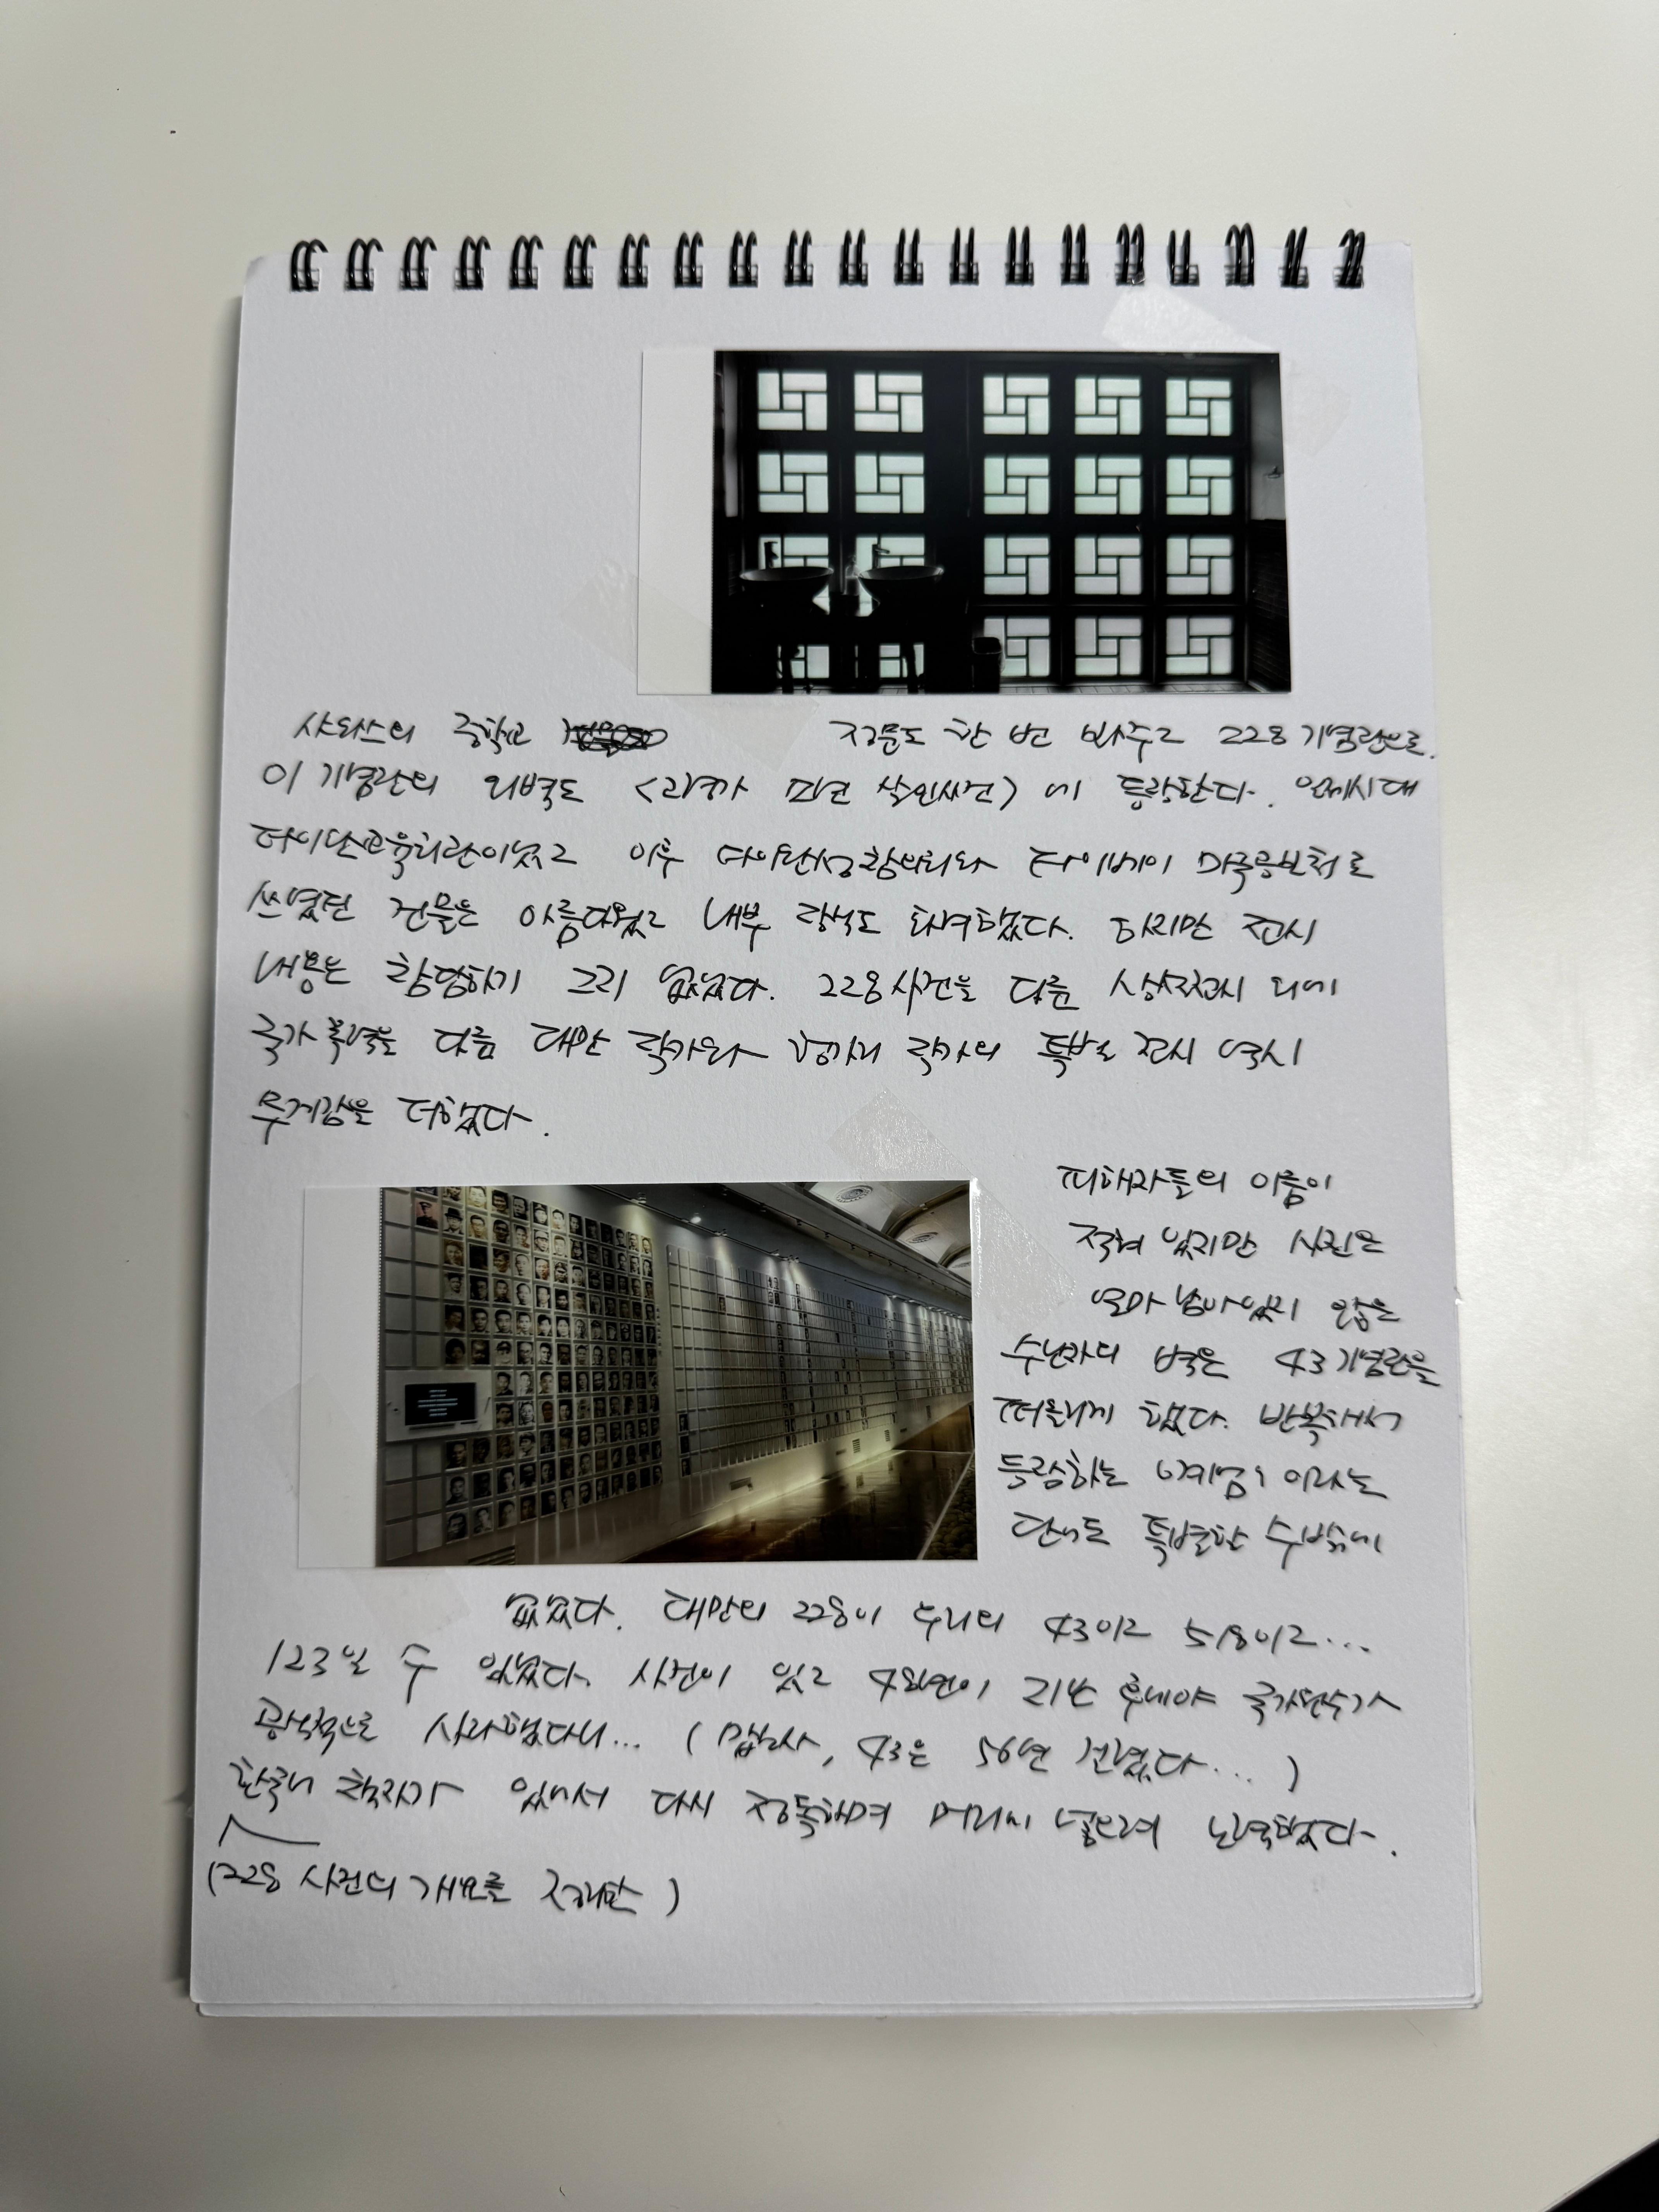 샤오쓰의 중학교 정문도 한 번 봐주고 228 기념관으로.
이 기념관의 외벽도 <고령가 소년 살인사건>에 등장한다. 일제시대
타이완교육회관이었고 이후 타이완성참의회와 타이베이 미국공보처로
쓰였던 건물은 아름다웠고 내부 장식도 화려했다. 하지만 전시
내용은 참담하기 그지 없었다. 228사건을 다룬 상설전시 외에
국가폭력을 다룬 대만 작가와 헝가리 작가의 특별 전시 역시
무게감을 더했다.
피해자들의 이름이
적혀 있지만 사진은
얼마 남아있지 않은
수난자의 벽은 43기념관을
떠올리게 했다. 반복해서
등장하는 '계엄' 이라는
단어도 특별할 수밖에
없었다. 대만의 228이 우리의 43이고 518이고...
123일 수 있었다. 사건이 있고 48년이 지난 후에야 국가원수가
공식적으로 사과했다니... (맙소사, 43은 56년 걸렸다...)
한국어 책자가 있어서 다시 정독하며 머리에 넣으려 노력했다.
(228 사건의 개요를 정리한)